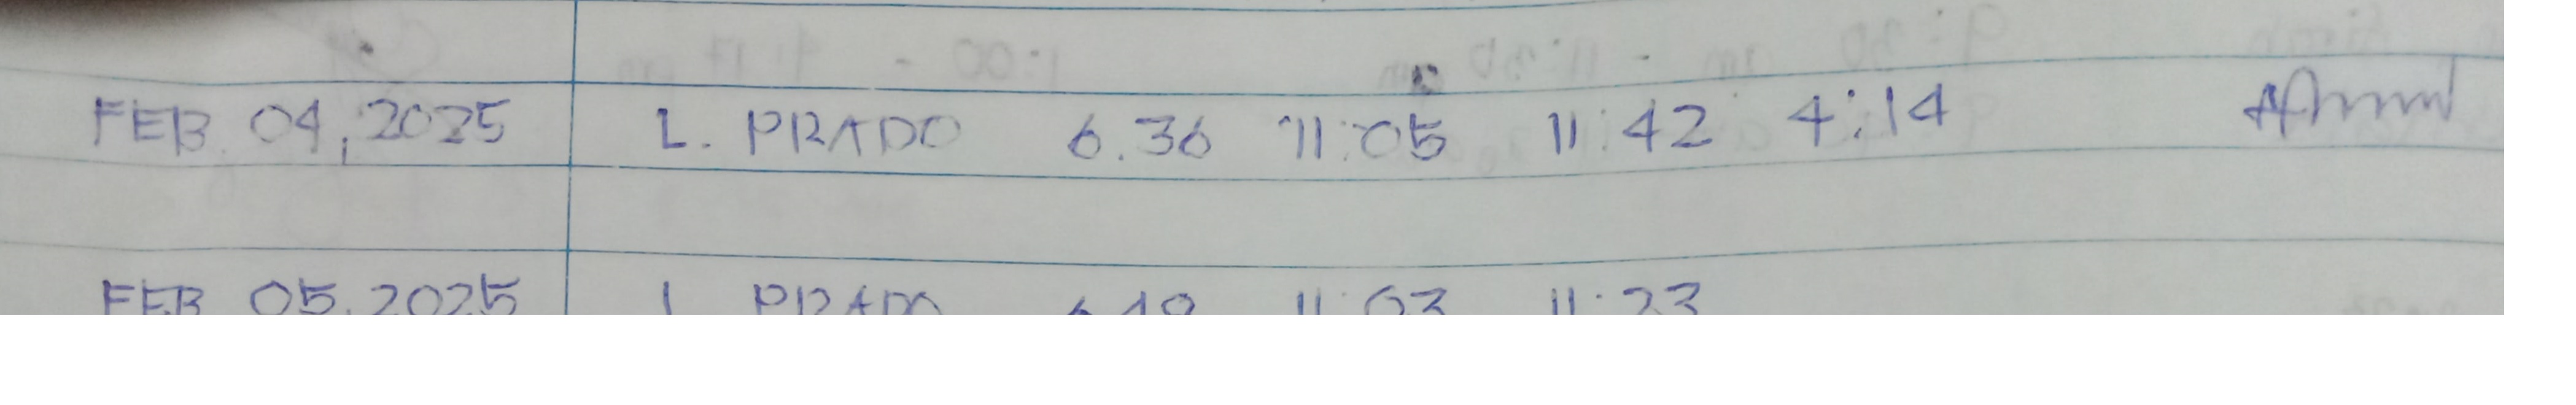 FEB. 04, 2025 L. PRADO 6.36 11:05 11:42 4:14
FEB 05.2025 L PRADO 11:03 11:23